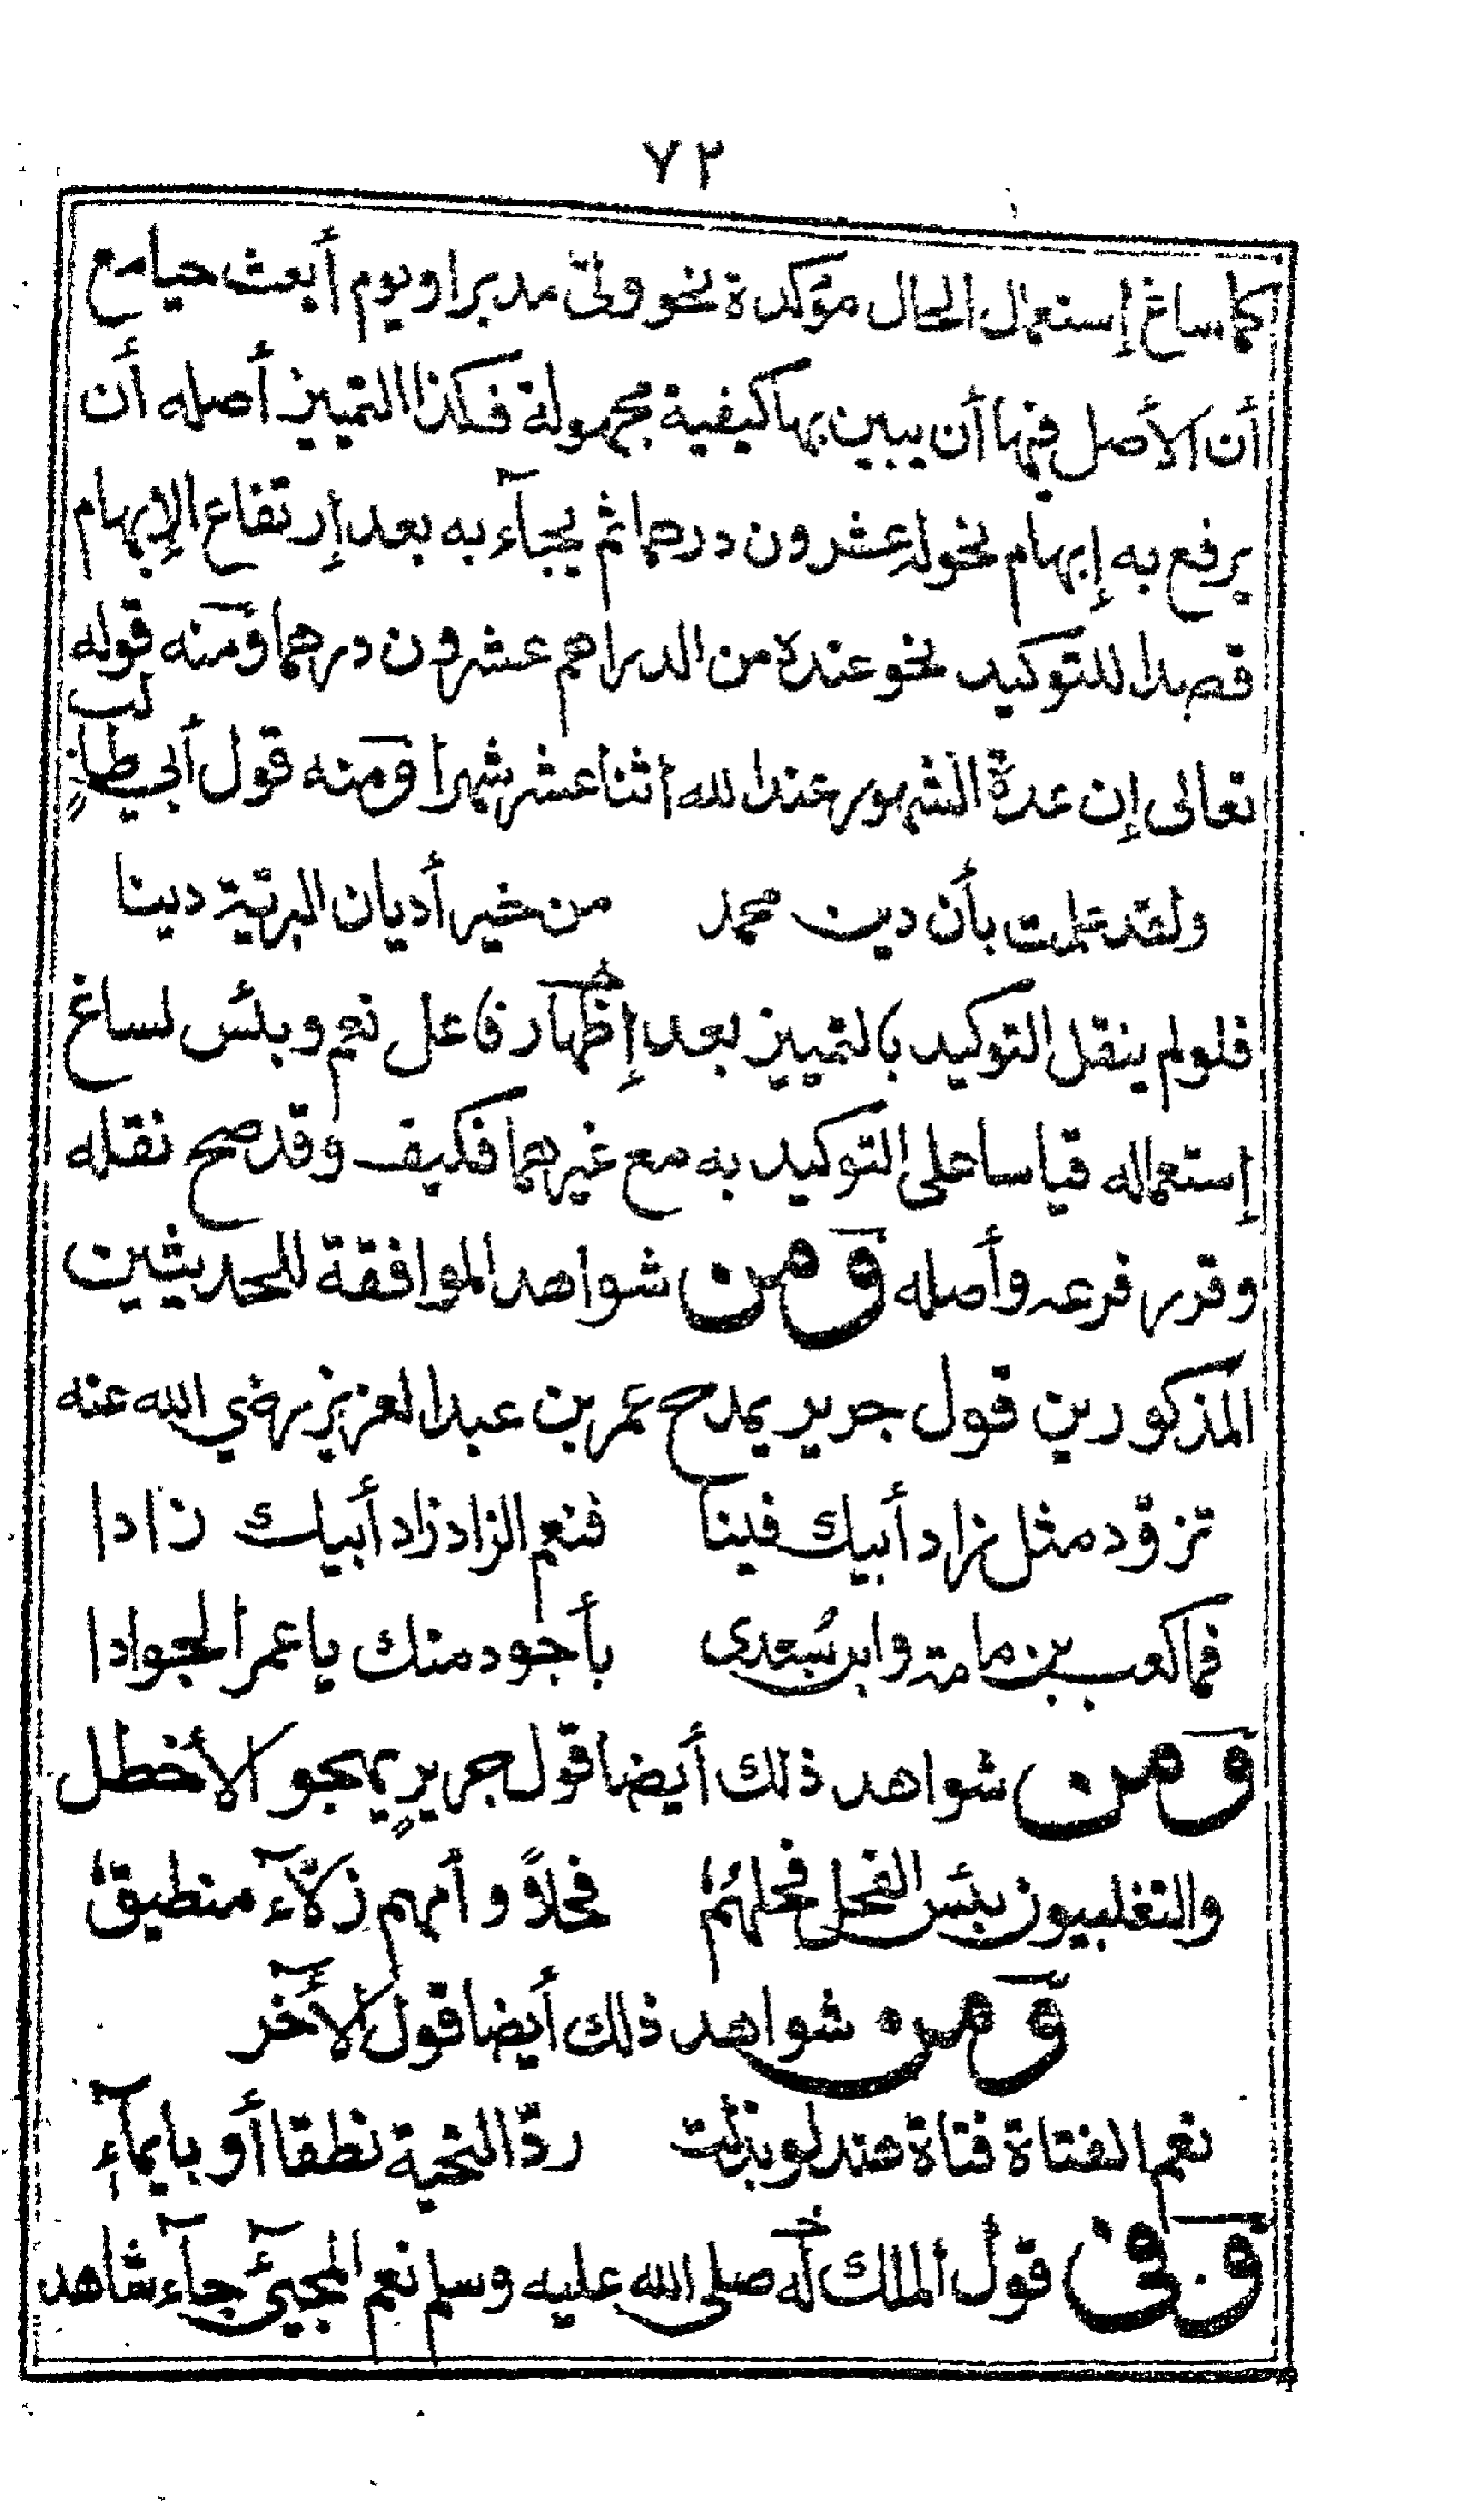 ٧٢
كما ساغ إستعمال الحال مؤكدة نحو ولى مدبرا ويوم أبعث حيا مع
أن الأصل فيها أن يبين بها كيفية مجهولة فكذا التمييز أصله أن
يرفع به إبهام نحو له عشرون درهما ثم يجآء به بعد إرتفاع الإبهام
قصدا للتوكيد نحو عنده من الدراهم عشرون درهما ومنه قوله
تعالى إن عدة الشهور عند الله اثنا عشر شهرا ومنه قول أبي طالب
ولقد علمت بأن دين محمد من خير أديان البريّة دينا
فلو لم ينقل التوكيد بالتمييز بعد إظهار فاعل نعم وبئس لساغ
إستعماله قياسا على التوكيد به مع غيرهما فكيف وقد صح نقله
وقرر فرعه وأصله ومن شواهد الموافقة للحديثين
المذكورين قول جرير يمدح عمر بن عبد العزيز رضي الله عنه
تزوّد مثل زاد أبيك فينا فنعم الزاد زاد أبيك زادا
فما كعب بن مامة وابن سُعدى بأجود منك يا عمر الجوادا
ومن شواهد ذلك أيضا قول جريرٍ يهجو الأخطل
والتغلبيون بئس الفحل فحلهُمْ فحلاً وأمهم زلّآء منطيقُ
ومن شواهد ذلك أيضا قول الآخر
نعم الفتاة فتاة هند لو بذلت ردّ التحية نطقا أو بإيمآءِ
وفي قول الملك له صلى الله عليه وسلم نعم المجيئ جآء شاهد